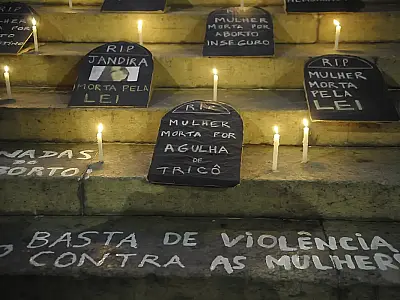 RIP
MULHER
MORTA POR
ABORTO
INSEGURO
RIP
JANDIRA
MORTA PELA
LEI
RIP
MULHER
MORTA PELA
LEI
RIP
MULHER
MORTA POR
AGULHA
DE
TRICÔ
BASTA DE VIOLÊNCIA
CONTRA AS MULHERES